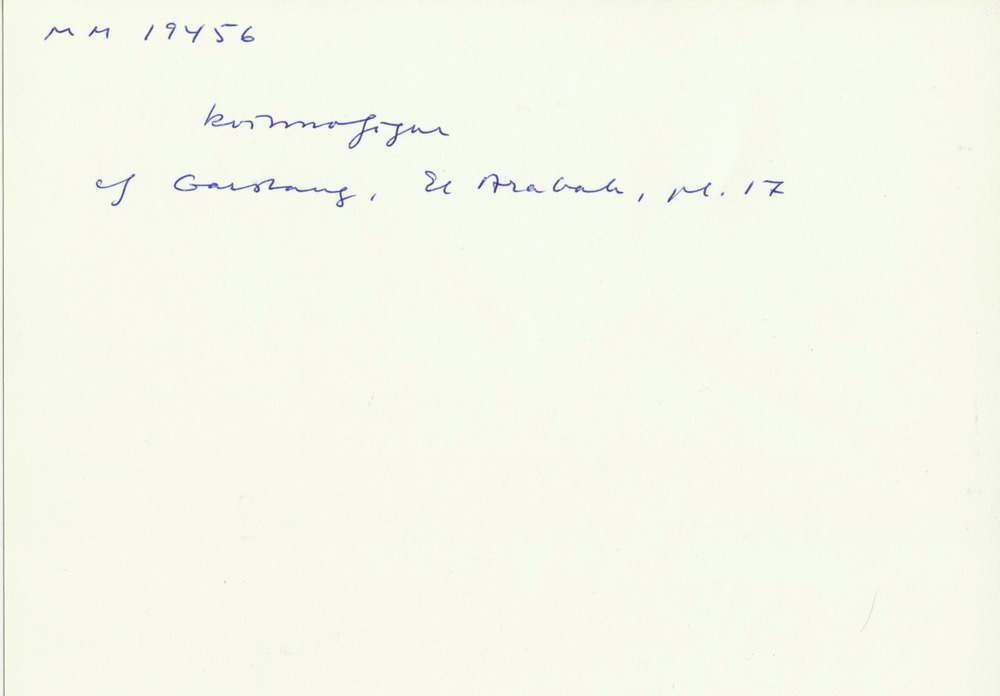 MM 19456
kvinnofigur
cf Garstang, El Arabah, pl. 17